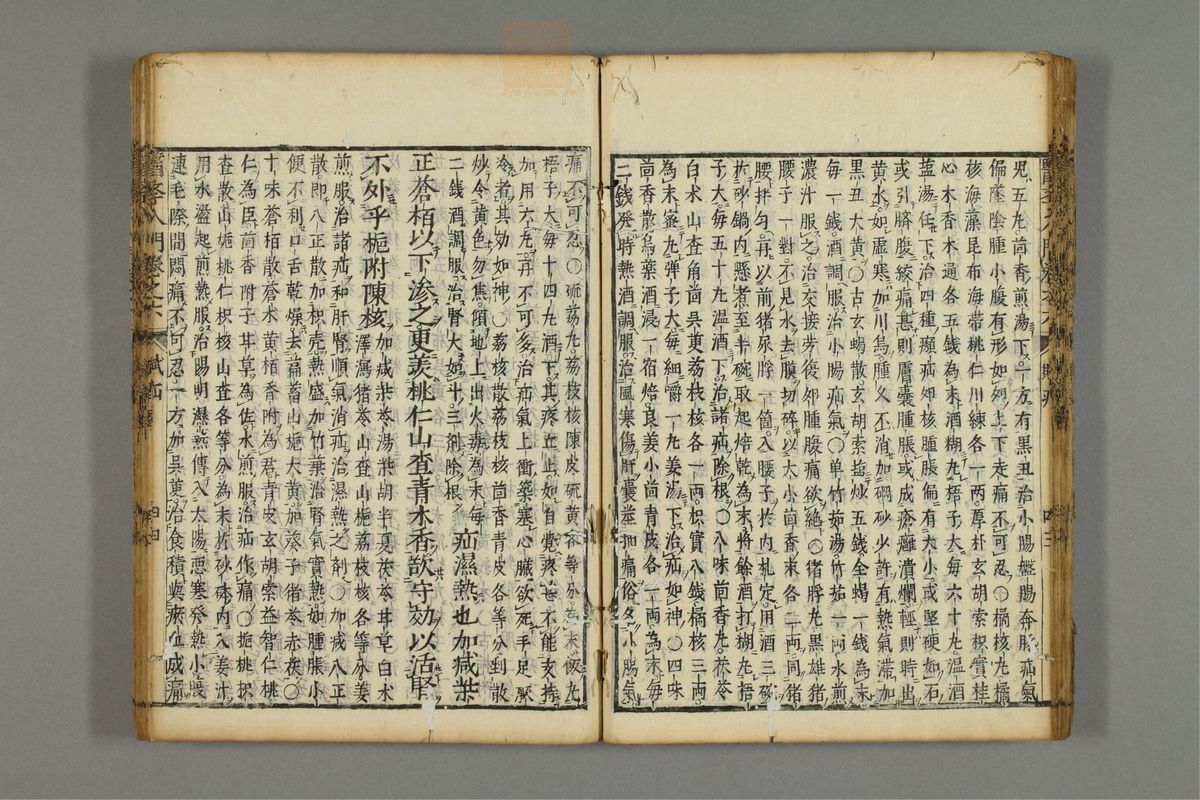 兒五九茴香煎湯下一方有黑丑治小腸盤腸奔豚疝氣
偏墜陰腫小腹有形如卵上下走痛不可忍○橘核丸橘
核海藻昆布海帶桃仁川練各一兩厚朴玄胡索枳實桂
心木香木通各五錢為末酒糊丸梧子大每六十丸溫酒
鹽湯任下治四種㿗疝卵核腫脹偏有大小或堅硬如石
或引臍腹絞痛甚則膚囊腫脹或成瘡癰潰爛輕則時出
黃水如虛寒加川烏腫久不消加硇砂少許有熱氣滯加
黑丑大黃○古玄蝎散玄胡索鹽炒五錢全蝎一錢為末
每一錢酒調服治小腸疝氣○單竹茹湯竹茹一兩水煎
濃汁服之治交接勞復卵腫腹痛欲絕○猪脬丸黑雄猪
腰子一對不見水去膜切碎以大小茴香末各二兩同猪
腰拌勻再以前猪尿脬一箇入腰子於內扎定用酒三碗
於砂鍋內懸煮至半碗取起焙乾為末將餘酒打糊丸梧
子大每五十丸溫酒下治諸疝除根○八味茴香丸茯苓
白朮山查角茴吳萸荔枝核各一兩枳實八錢橘核三兩
為末蜜丸彈子大每細嚼一丸姜湯下治疝如神○四味
茴香散烏藥酒浸一宿焙良姜小茴青皮各一兩為末每
二錢發時熱酒調服治風寒傷肝囊莖抽痛俗名小腸氣
痛不可忍○硫荔丸荔枝核陳皮硫黃各等分為末飯丸
梧子大每十四丸酒下其疼立止如自覺疼甚不能支持
加用六丸再不可多治疝氣上衝築塞心臟欲死手足厥
冷者其効如神○荔核散荔枝核茴香青皮各等分剉散
炒令黃色勿焦傾地上出火毒為末每
二錢酒調服治腎大如斗三劑除根
疝濕熱也加減柴
正蒼栢以下滲之更羡桃仁山查青木香飲守効以活腎
不外乎梔附陳核
加減柴苓湯柴胡半夏茯苓甘草白朮
澤瀉猪苓山查山梔荔枝核各等分姜
煎服治諸疝和肝腎順氣消疝治濕熱之劑○加減八正
散即八正散加枳売熱盛加竹葉治腎氣實熱如腫脹小
便不利口舌乾燥去萹蓄山梔大黃加葵子猪苓赤茯○
十味蒼栢散蒼朮黃栢香附為君青皮玄胡索益智仁桃
仁為臣茴香附子甘草為佐水煎服治疝作痛○梔桃枳
查散山梔桃仁枳核山查各等分為末於砂砵內入姜汁
用水盪起煎熱服治陽明濕熱傳入太陽惡寒發熱小腹
連毛際間悶痛不可忍一方加吳萸治食積與瘀血成痛